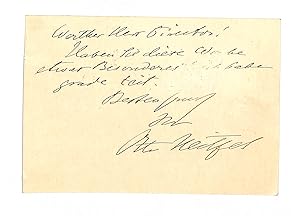 Werther Herr Director!
Haben Sie diese Woche
etwas Besonderes? ich habe
grade Zeit.
Besten Gruss
Ihr
Otto Neitzel